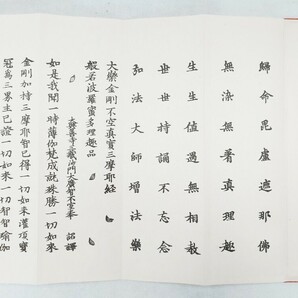 歸命毘盧遮那佛
無染無著真理趣
生生值遇無相教
世世持誦不忘念
弘法大師增法樂
大樂金剛不空真實三摩耶經
般若波羅蜜多理趣品
大興善寺三藏沙門大廣智不空奉 詔譯
如是我聞一時薄伽梵成就殊勝一切如來
金剛加持三摩耶智已得一切如來灌頂寶
冠為三界主已證一切如來一切智智瑜伽